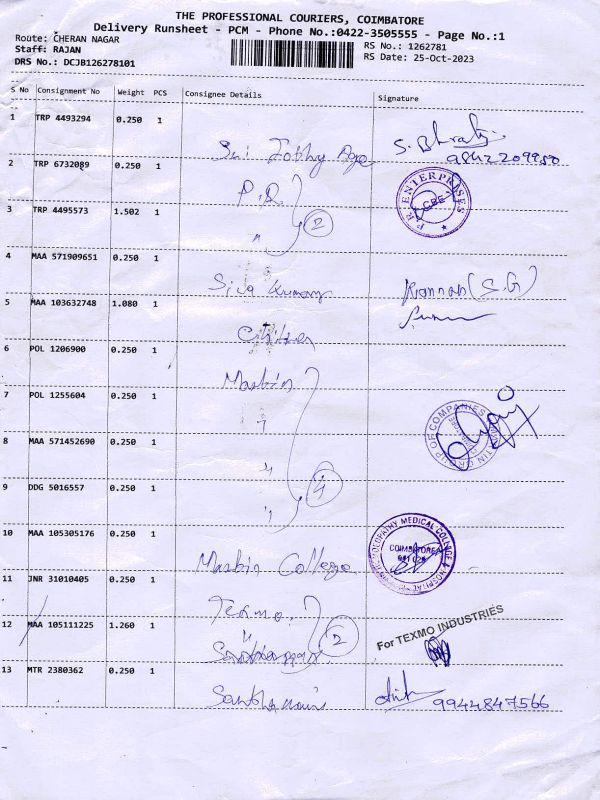 THE PROFESSIONAL COURIERS, COIMBATORE
Delivery Runsheet - PCM - Phone No.:0422-3505555 - Page No.:1
Route: CHERAN NAGAR
Staff: RAJAN
DRS No.: DCJB126278101
RS No.: 1262781
RS Date: 25-Oct-2023
S No Consignment No Weight PCS Consignee Details Signature
1 TRP 4493294 0.250 1
Sri Jothy Age S. Bharati 9842209950
2 TRP 6732089 0.250 1
P.R 2 P.R ENTERPRISES CBE
3 TRP 4495573 1.502 1
"
4 MAA 571909651 0.250 1
Siva Kumar Kannan (S.G)
5 MAA 103632748 1.080 1
6 POL 1206900 0.250 1
Martin
7 POL 1255604 0.250 1
" MARTIN GROUP OF COMPANIES
8 MAA 571452690 0.250 1
"
9 DDG 5016557 0.250 1
" 4
10 MAA 105305176 0.250 1
Martin College HOMOEOPATHY MEDICAL COLLEGE & HOSPITAL COIMBATORE
11 JNR 31010405 0.250 1
Texmo. For TEXMO INDUSTRIES
12 MAA 105111225 1.260 1
" 2
13 MTR 2380362 0.250 1
9944847566